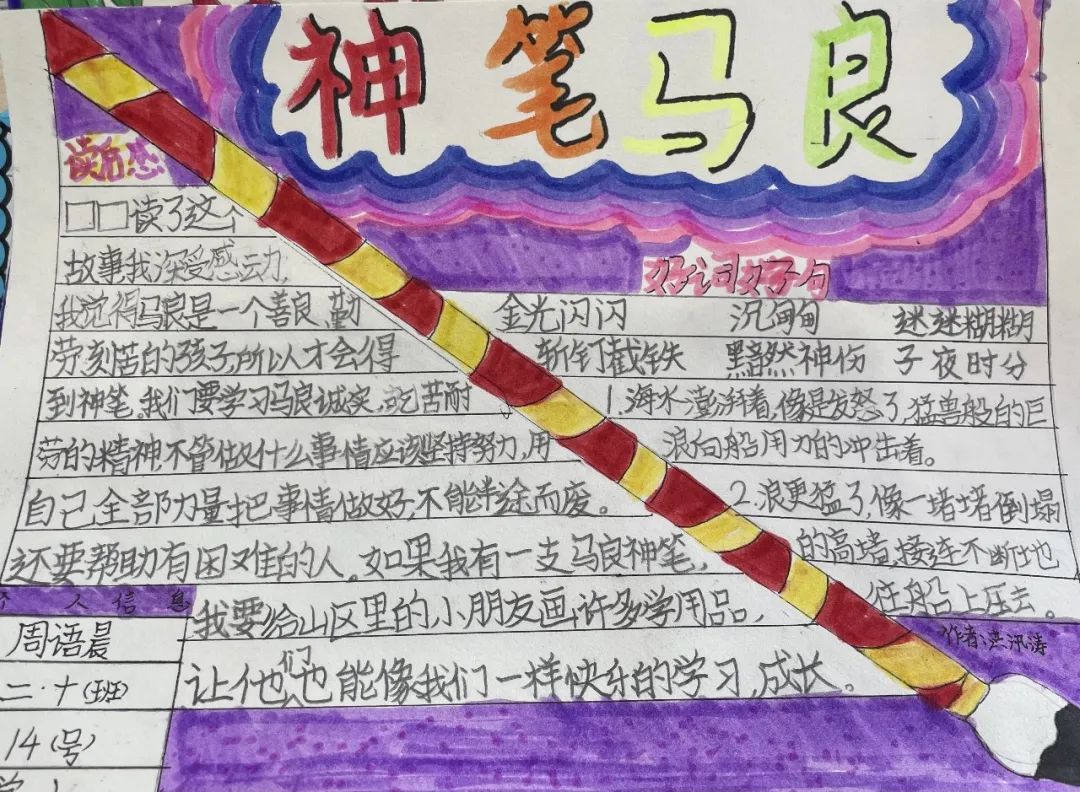 神笔马良
读后感
□□读了这个
故事我深受感动,
我觉得马良是一个善良、勤
劳刻苦的孩子,所以才会得
到神笔。我们要学习马良诚实、吃苦耐
劳的精神,不管做什么事情应该坚持努力,用
自己全部力量把事情做好,不能半途而废。
还要帮助有困难的人。如果我有一支马良神笔,
我要给山区里的小朋友画许多学用品,
让他们也能像我们一样快乐的学习,成长。
好词好句
金光闪闪 沉甸甸 迷迷糊糊
斩钉截铁 黯然神伤 子夜时分
1.海水澎湃着,像是发怒了,猛兽般的巨
浪向船用力的冲击着。
2.浪更猛了,像一堵堵倒塌
的高墙,接连不断地
往船上压去。
作者:洪汛涛
个人信息
周语晨
二·十(班)
14(号)